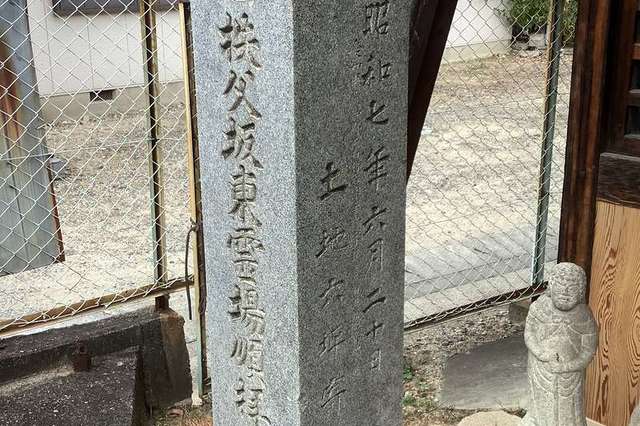 秩父坂東霊場順拝
昭和七年六月二十日
土地六坪